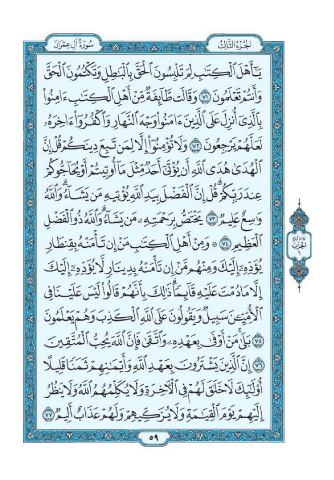 سورة آل عمران
الجزء الثالث
يَٰٓأَهۡلَ ٱلۡكِتَٰبِ لِمَ تَلۡبِسُونَ ٱلۡحَقَّ بِٱلۡبَٰطِلِ وَتَكۡتُمُونَ ٱلۡحَقَّ
وَأَنتُمۡ تَعۡلَمُونَ ٧١ وَقَالَت طَّآئِفَةٞ مِّنۡ أَهۡلِ ٱلۡكِتَٰبِ ءَامِنُواْ
بِٱلَّذِيٓ أُنزِلَ عَلَى ٱلَّذِينَ ءَامَنُواْ وَجۡهَ ٱلنَّهَارِ وَٱكۡفُرُوٓاْ ءَاخِرَهُۥ
لَعَلَّهُمۡ يَرۡجِعُونَ ٧٢ وَلَا تُؤۡمِنُوٓاْ إِلَّا لِمَن تَبِعَ دِينَكُمۡ قُلۡ إِنَّ
ٱلۡهُدَىٰ هُدَى ٱللَّهِ أَن يُؤۡتَىٰٓ أَحَدٞ مِّثۡلَ مَآ أُوتِيتُمۡ أَوۡ يُحَآجُّوكُمۡ
عِندَ رَبِّكُمۡۗ قُلۡ إِنَّ ٱلۡفَضۡلَ بِيَدِ ٱللَّهِ يُؤۡتِيهِ مَن يَشَآءُۗ وَٱللَّهُ
وَٰسِعٌ عَلِيمٞ ٧٣ يَخۡتَصُّ بِرَحۡمَتِهِۦ مَن يَشَآءُۗ وَٱللَّهُ ذُو ٱلۡفَضۡلِ
ٱلۡعَظِيمِ ٧٤ ۞ وَمِنۡ أَهۡلِ ٱلۡكِتَٰبِ مَنۡ إِن تَأۡمَنۡهُ بِقِنطَارٖ
يُؤَدِّهِۦٓ إِلَيۡكَ وَمِنۡهُم مَّنۡ إِن تَأۡمَنۡهُ بِدِينَارٖ لَّا يُؤَدِّهِۦٓ إِلَيۡكَ
إِلَّا مَا دُمۡتَ عَلَيۡهِ قَآئِمٗاۗ ذَٰلِكَ بِأَنَّهُمۡ قَالُواْ لَيۡسَ عَلَيۡنَا فِي
ٱلۡأُمِّيِّـۧنَ سَبِيلٞ وَيَقُولُونَ عَلَى ٱللَّهِ ٱلۡكَذِبَ وَهُمۡ يَعۡلَمُونَ
٧٥ بَلَىٰۚ مَنۡ أَوۡفَىٰ بِعَهۡدِهِۦ وَٱتَّقَىٰ فَإِنَّ ٱللَّهَ يُحِبُّ ٱلۡمُتَّقِينَ
٧٦ إِنَّ ٱلَّذِينَ يَشۡتَرُونَ بِعَهۡدِ ٱللَّهِ وَأَيۡمَٰنِهِمۡ ثَمَنٗا قَلِيلًا
أُوْلَٰٓئِكَ لَا خَلَٰقَ لَهُمۡ فِي ٱلۡأٓخِرَةِ وَلَا يُكَلِّمُهُمُ ٱللَّهُ وَلَا يَنظُرُ
إِلَيۡهِمۡ يَوۡمَ ٱلۡقِيَٰمَةِ وَلَا يُزَكِّيهِمۡ وَلَهُمۡ عَذَابٌ أَلِيمٞ ٧٧
٥٩